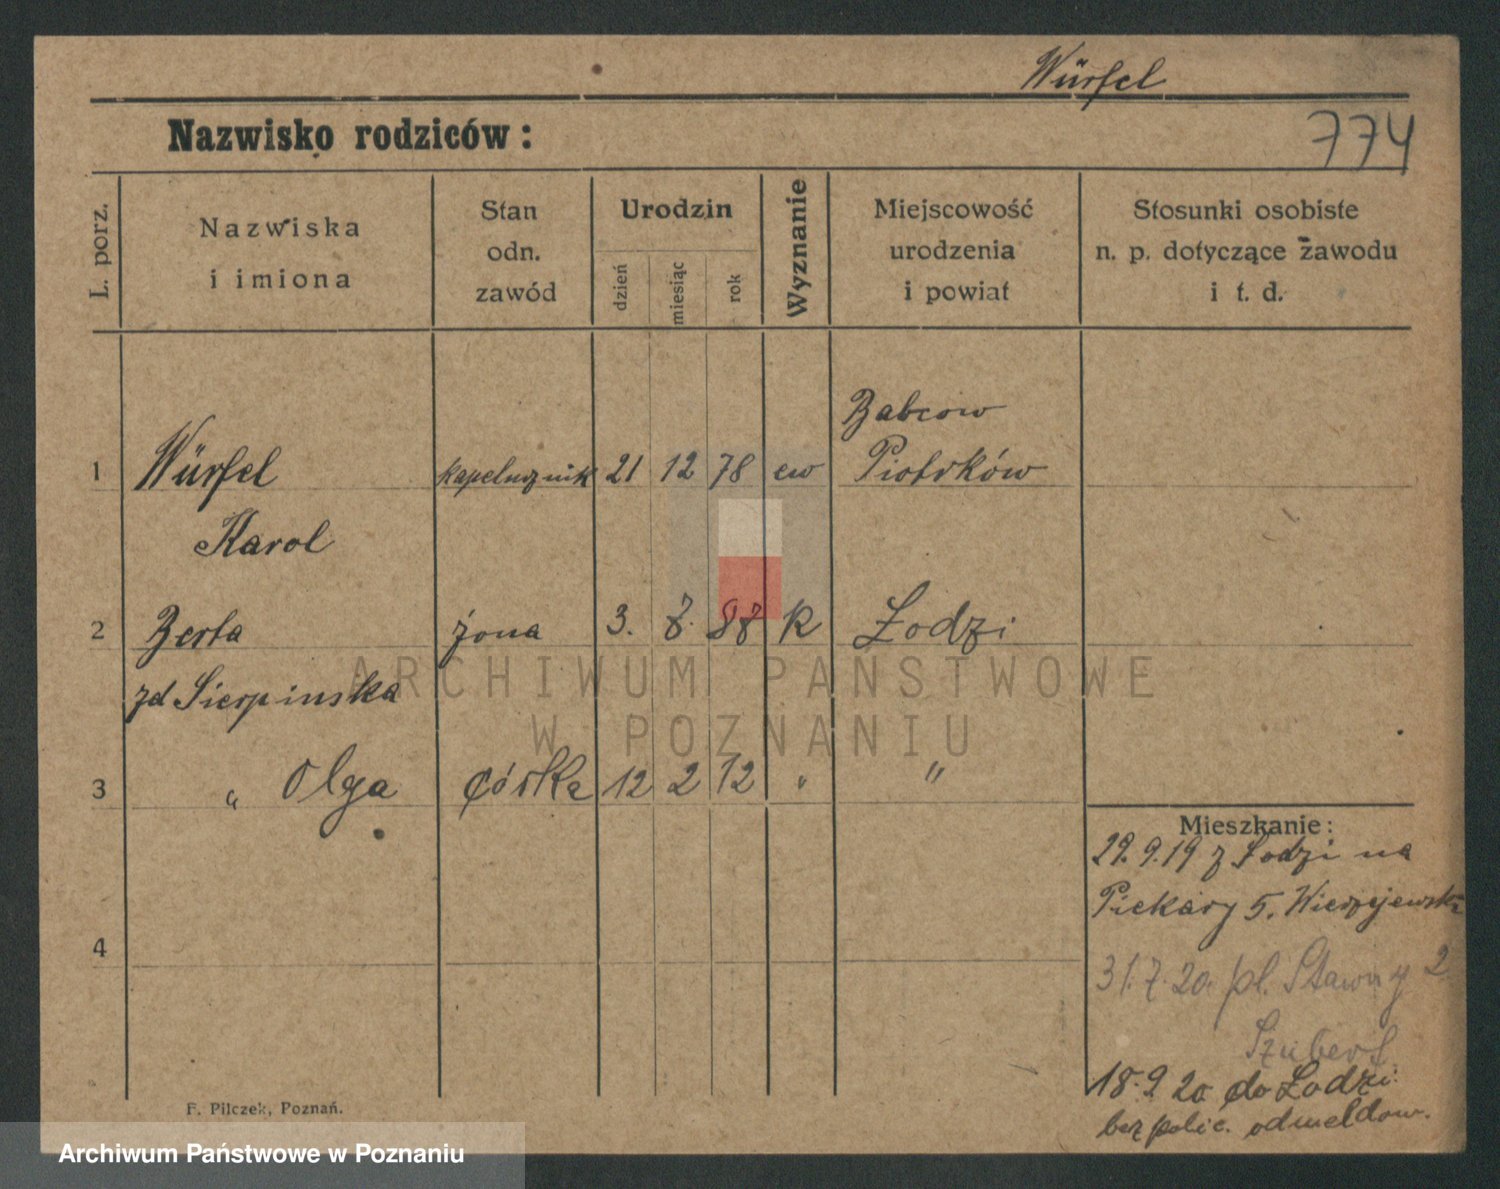 Würfel
774
Nazwisko rodziców:
L. porz.
Nazwiska
i imiona
Stan
odn.
zawód
Urodzin
dzień
miesiąc
rok
Wyznanie
Miejscowość
urodzenia
i powiat
Stosunki osobiste
n. p. dotyczące zawodu
i t. d.
Babcow
1 Würfel kapelusznik 21 12 78 ew Piotrków
Karol
2 Berta żona 3. 7. 87 k Łodzi
zd Sierpinska
3 " Olga córka 12 2 12 " "
Mieszkanie:
29.9.19 z Łodzi na
Piekary 5. Wierzejewski
4
31.7.20. pl. Stawny 2
Szubert
18.9 20 do Łodzi
bez polic. odmeldow.
F. Pilczek, Poznań.
ARCHIWUM PAŃSTWOWE
W POZNANIU
Archiwum Państwowe w Poznaniu